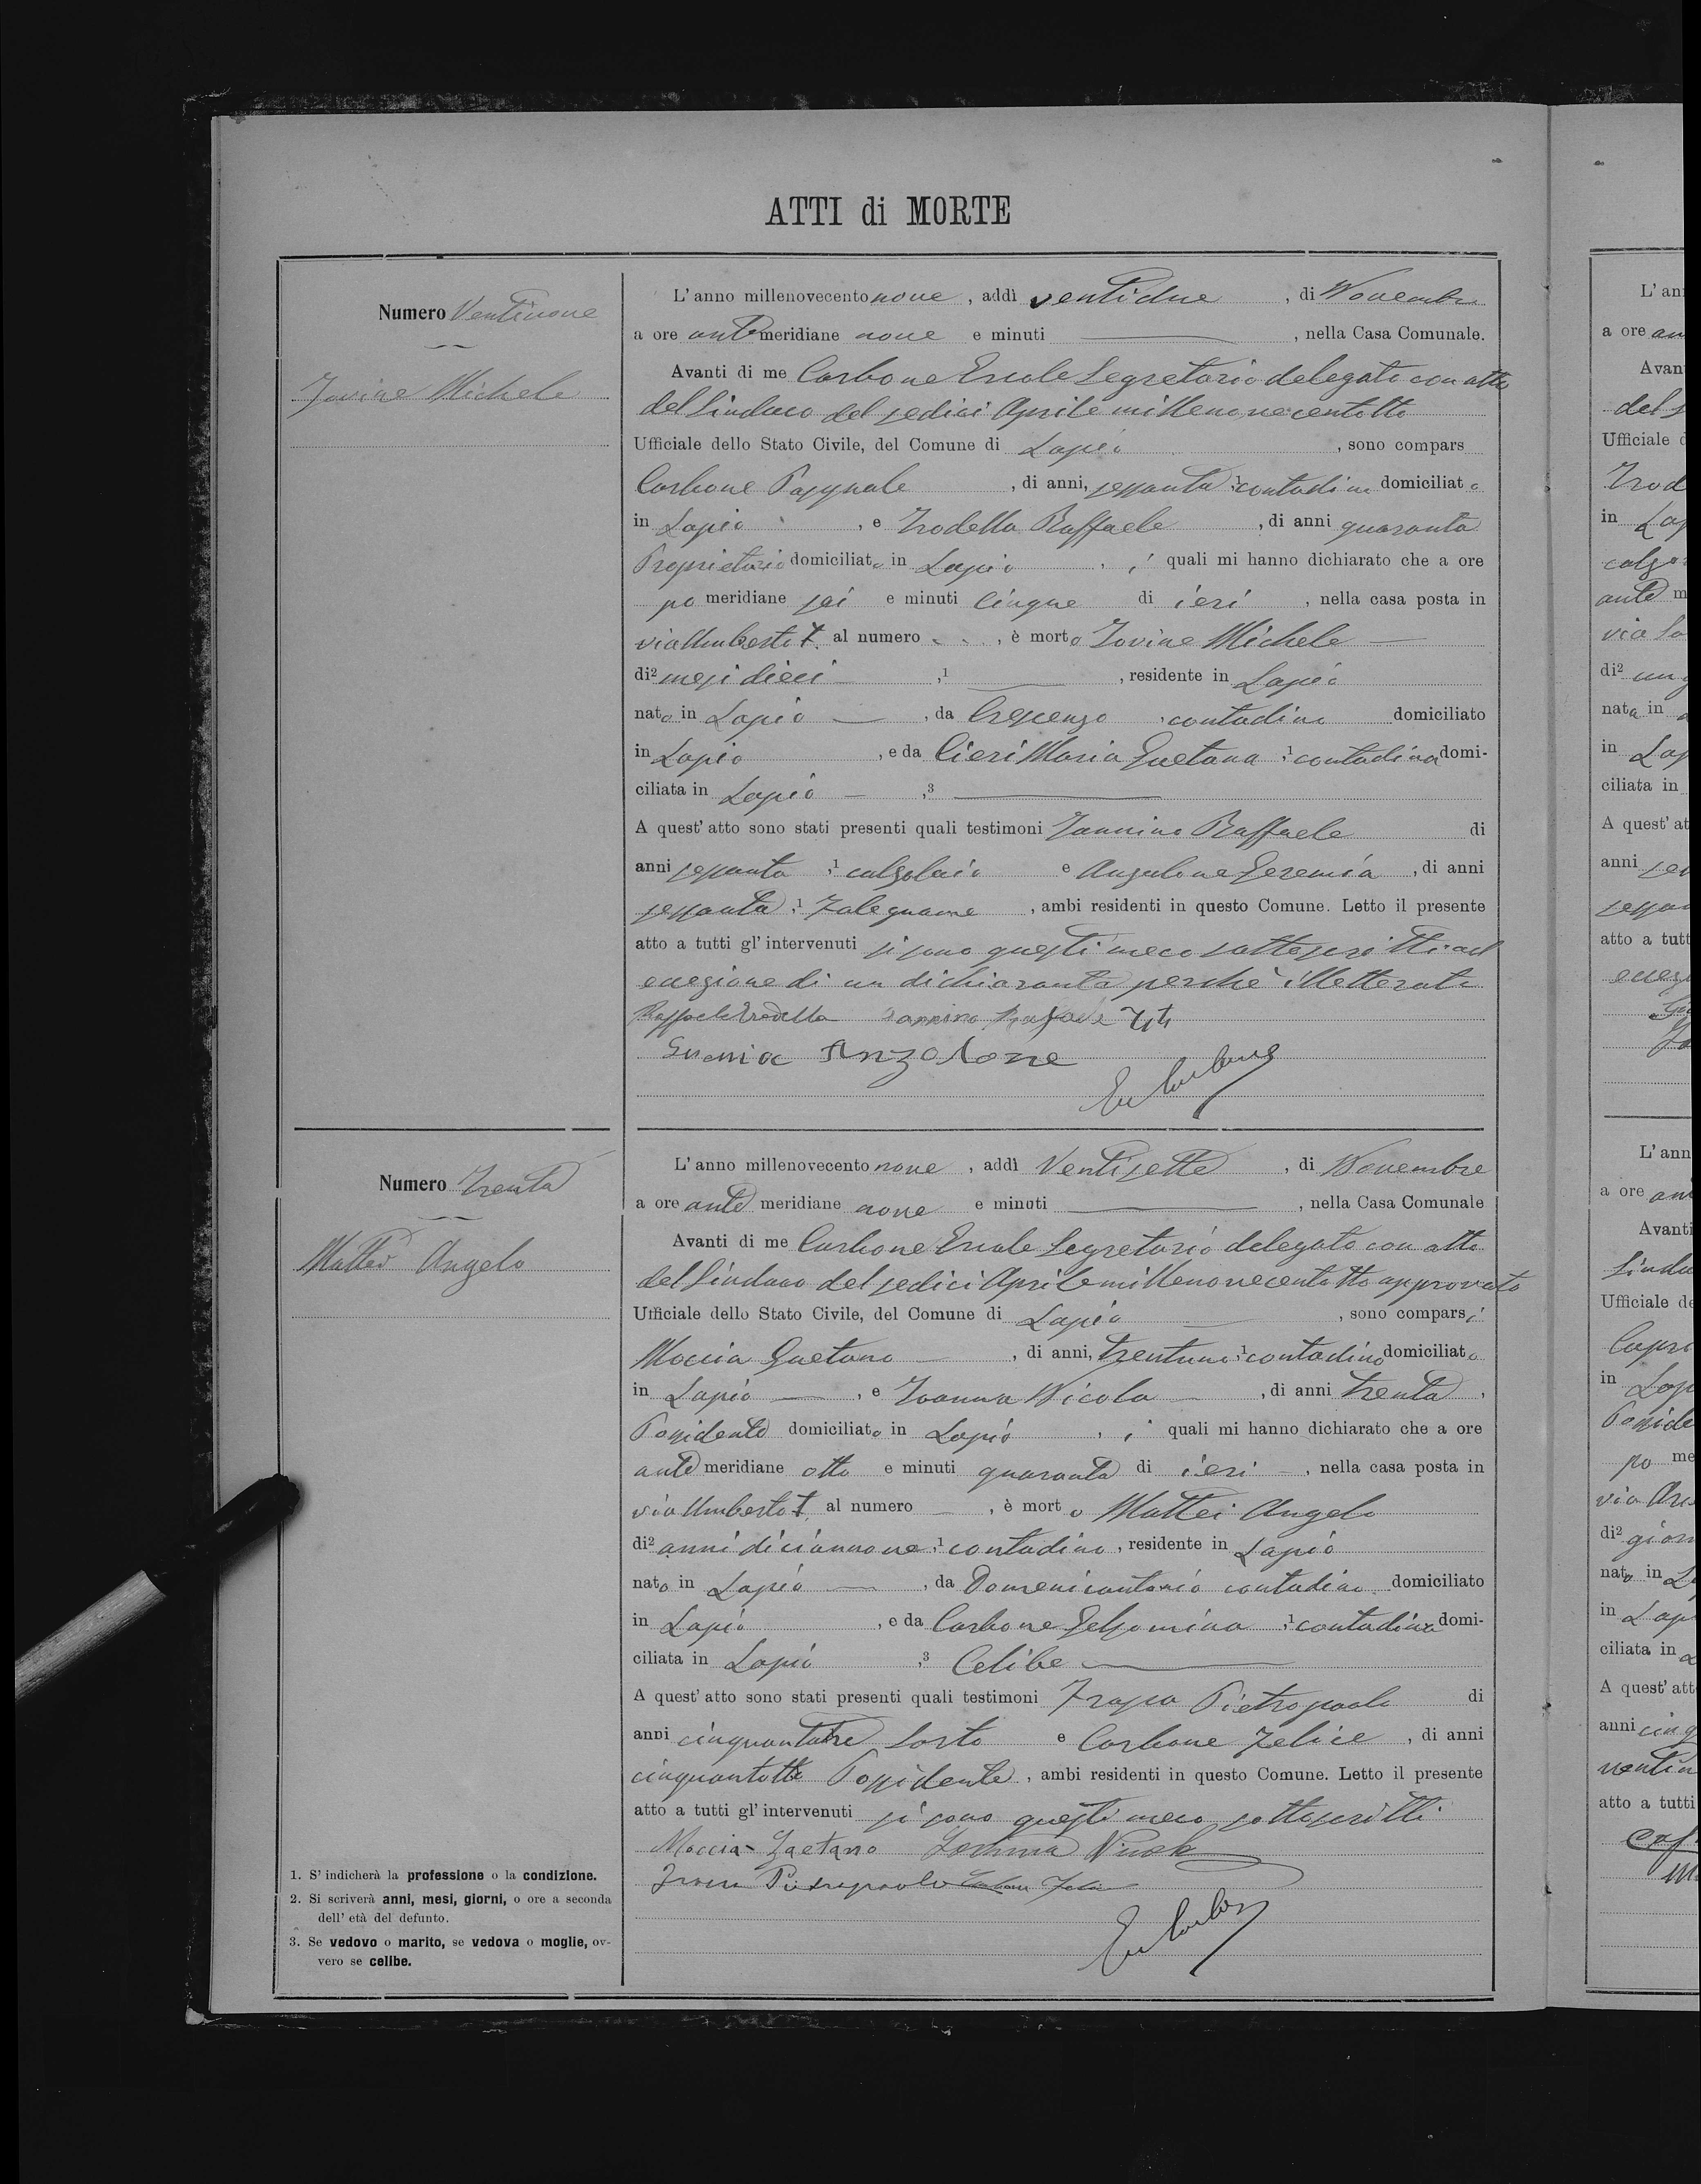 ATTI di MORTE
Numero Ventinove
Iovine Michele
L'anno millenovecento nove, addì ventidue, di Novembre
a ore antimeridiane nove e minuti —, nella Casa Comunale.
Avanti di me Carbone Ercole Segretario delegato con atto
del Sindaco del sedici Aprile millenovecentotto
Ufficiale dello Stato Civile, del Comune di Lapio, sono compars
Carbone Pasquale, di anni, sessanta,¹ contadino domiciliato
in Lapio, e Trodella Raffaele, di anni quaranta
Proprietario domiciliato in Lapio, i quali mi hanno dichiarato che a ore
po meridiane sei e minuti cinque di ieri, nella casa posta in
via Umberto I. al numero , è morto Iovine Michele —
di² mesi dieci —,¹ —, residente in Lapio
nato in Lapio —, da Crescenzo, contadino domiciliato
in Lapio, e da Cieri Maria Gaetana,¹ contadina domi-
ciliata in Lapio —,³ —
A quest'atto sono stati presenti quali testimoni Iannino Raffaele di
anni sessanta,¹ calzolaio e Anzalone Geremia, di anni
sessanta,¹ Falegname, ambi residenti in questo Comune. Letto il presente
atto a tutti gl'intervenuti si sono questi meco sottoscritti ad
ecezione di un dichiarante perchè illetterato
Raffaele Trodella Iannino Rafaele
Geremia Anzalone
Numero Trenta
Mattei Angelo
L'anno millenovecento nove, addì Ventisette, di Novembre
a ore ante meridiane nove e minuti —, nella Casa Comunale
Avanti di me Carbone Ercole Segretario delegato con atto
del Sindaco del sedici Aprile millenovecentotto approvato
Ufficiale dello Stato Civile, del Comune di Lapio —, sono comparsi
Moccia Gaetano —, di anni, trentuno,¹ contadino domiciliato
in Lapio —, e Ioanna Nicola —, di anni trenta,
Possidente domiciliato in Lapio, i quali mi hanno dichiarato che a ore
ante meridiane otto e minuti quaranta di ieri —, nella casa posta in
via Umberto I, al numero —, è morto Mattei Angelo
di² anni diciannove,¹ contadino, residente in Lapio
nato in Lapio —, da Domenicantonio contadino domiciliato
in Lapio, e da Carbone Gelsomina,¹ contadina domi-
ciliata in Lapio,³ Celibe —
A quest'atto sono stati presenti quali testimoni Pietropaolo di
anni cinquantatre Sarto e Carbone Felice, di anni
cinquantotto Possidente, ambi residenti in questo Comune. Letto il presente
atto a tutti gl'intervenuti si sono questi meco sottoscritti
Moccia Gaetano Nicola
Pietropaolo
1. S'indicherà la professione o la condizione.
2. Si scriverà anni, mesi, giorni, o ore a seconda
dell'età del defunto.
3. Se vedovo o marito, se vedova o moglie, ov-
vero se celibe.
L'an
a ore an
Avan
del s
Ufficiale d
Trod
in Lap
calzo
ante m
via
di²
nata in
in Lap
ciliata in
A quest'at
anni
sessan
atto a tutt
L'ann
a ore an
Avanti
Sinda
Ufficiale de
Capr
in Lap
Posside
po me
via
di² gior
nato in L
in Lap
ciliata in
A quest'att
anni cinq
atto a tutti